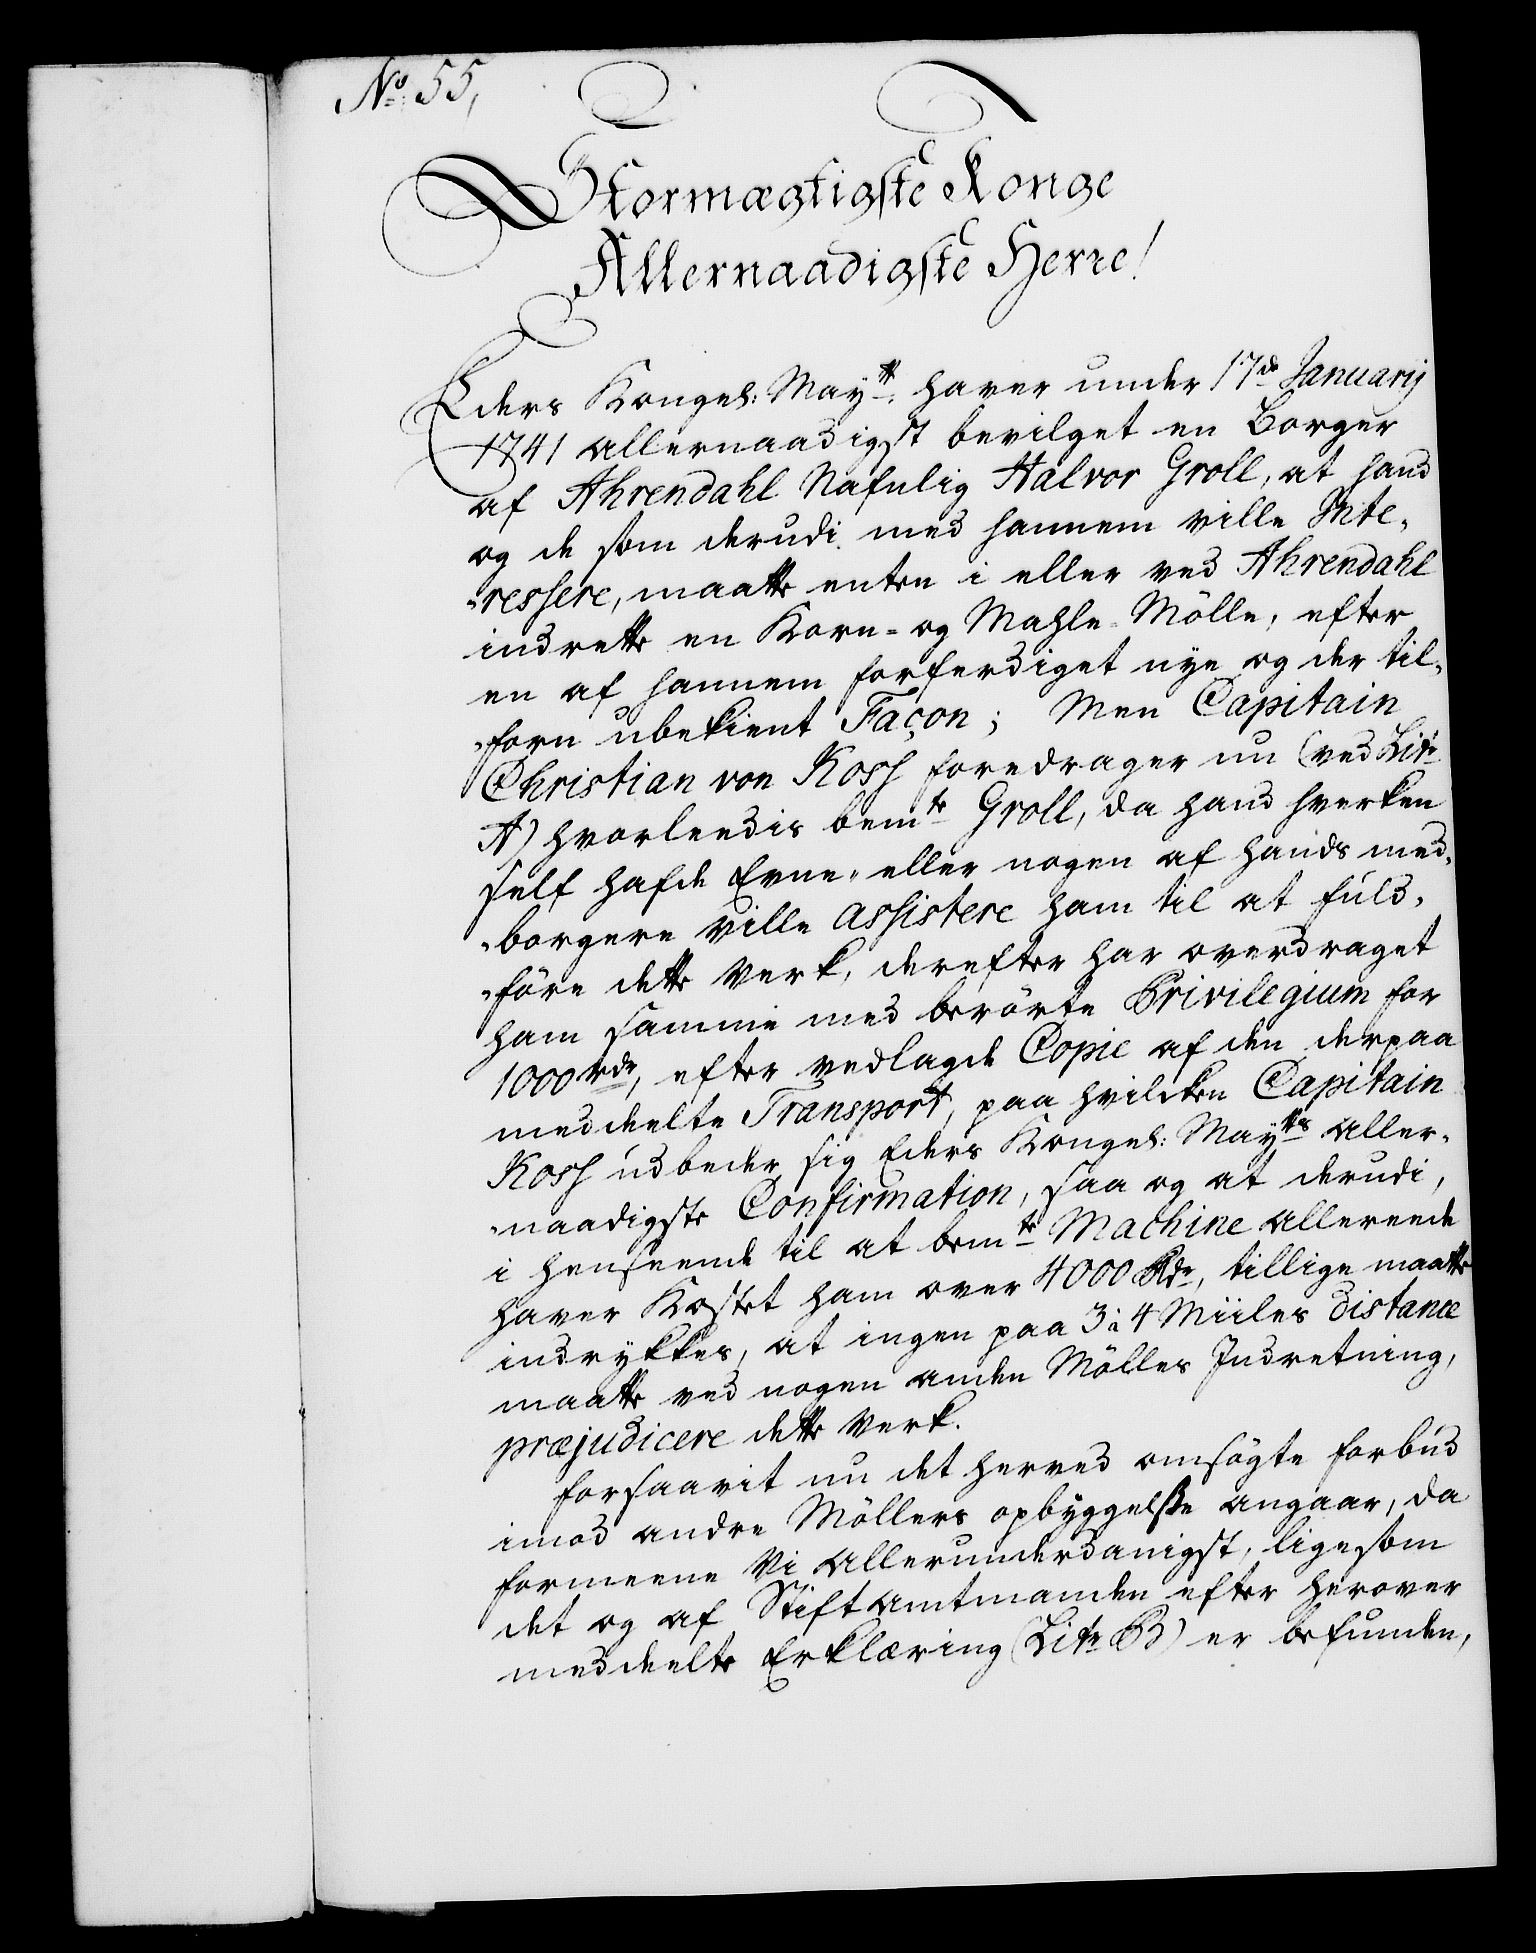 No 55,
Stormægtigste Konge
Allernaadigste Herre!
Eders Kongel: Maytt: haver under 17de Januarij
1741 allernaadigst bevilget en Borger
af Ahrendahl Nafnlig Halvor Groll, at hand
og de som derudi med hannem ville Inte„
„ressere, maatte enten i eller ved Ahrendahl
indrette en Korn- og Mahle-Mölle, efter
en af hannem forferdiget nye og der til„
„forn ubekient Façon; Men Capitain
Christian von Kosh foredrager nu (ved Litr
A) hvorleedis bemte Groll, da hand hverken
self hafde Evne, eller nogen af hands med„
„borgere ville assistere ham til at fuld„
„före dette Verk, derefter har overdraget
ham samme med berörte Privilegium for
1000 rdr, efter vedlagde Copie af den derpaa
meddeelte Transport, paa hvilcken Capitain
Kosh udbeder sig Eders Kongel: Maytts aller„
„naadigste Confirmation, saa og at derudi,
i henseende til at bemte Machine allereede
haver Kostet ham over 4000 Rdr, tillige maatte
indrykkes, at ingen paa 3 à 4 Miiles distance
maatte ved nogen anden Mölles Indretning,
præjudicere dette Verk.
Forsaavit nu det herved ansögte forbud
imod andre Möllers opbyggelse angaar, da
formeene Vi allerunderdanigst, ligesom
det og af Stiftamtmanden efter herover
meddeelte Erklæring (Litr B) er befunden,